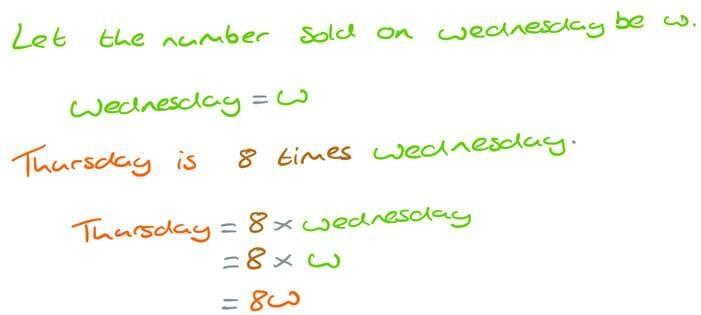 Let the number sold on wednesday be w.
Wednesday = w
Thursday is 8 times wednesday.
Thursday = 8 × wednesday
= 8 × w
= 8w